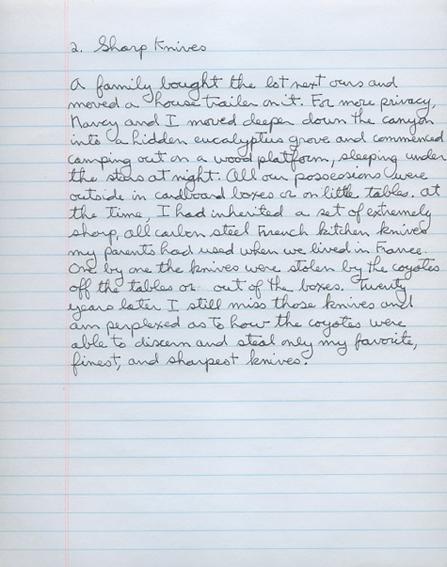 2. Sharp Knives
A family bought the lot next ours and
moved a house trailer on it. For more privacy,
Nancy and I moved deeper down the canyon
into a hidden eucalyptus grove and commenced
camping out on a wood platform, sleeping under
the stars at night. All our possessions were
outside in cardboard boxes or on little tables. At
the time, I had inherited a set of extremely
sharp, all carbon steel French kitchen knives
my parents had used when we lived in France.
One by one the knives were stolen by the coyotes
off the tables or out of the boxes. Twenty
years later I still miss those knives and
am perplexed as to how the coyotes were
able to discern and steal only my favorite,
finest, and sharpest knives.